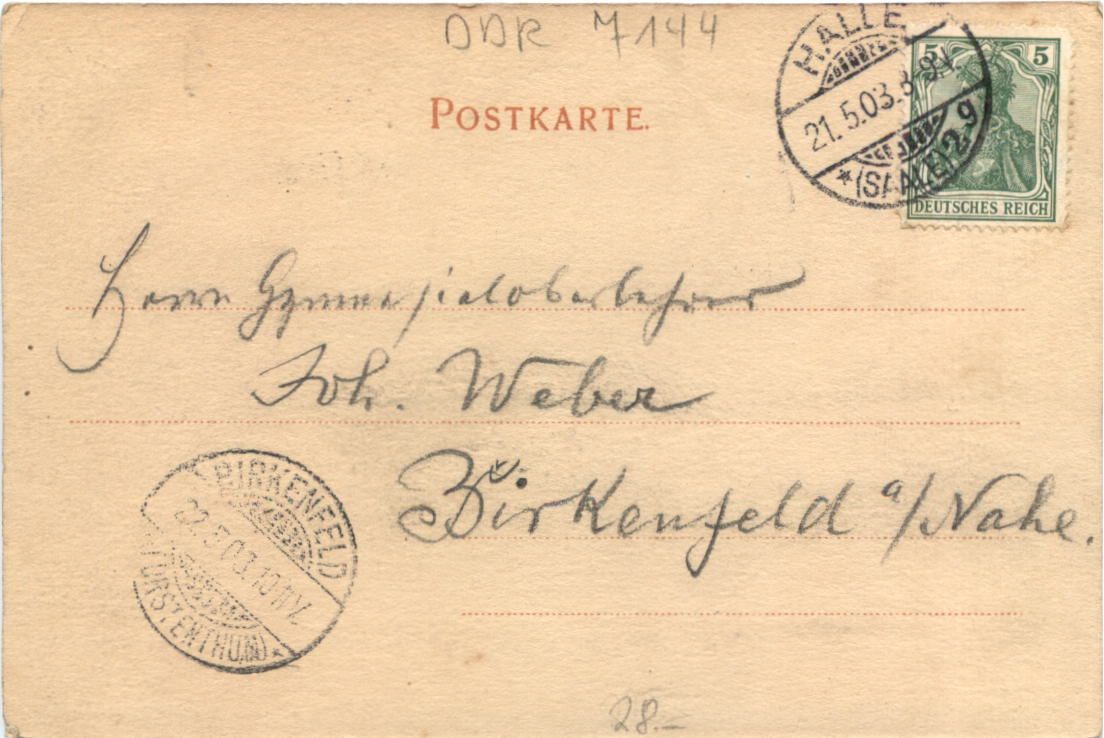 DDR 7144
POSTKARTE.
HALLE
21.5.03. 8-9N.
*(SAALE)2g
5 5
DEUTSCHES REICH
Herrn Gymnasialoberlehrer
Joh. Weber
Birkenfeld a/Nahe.
BIRKENFELD
22.5.03.10-11V.
(FÜRSTENTHUM)*
28.-